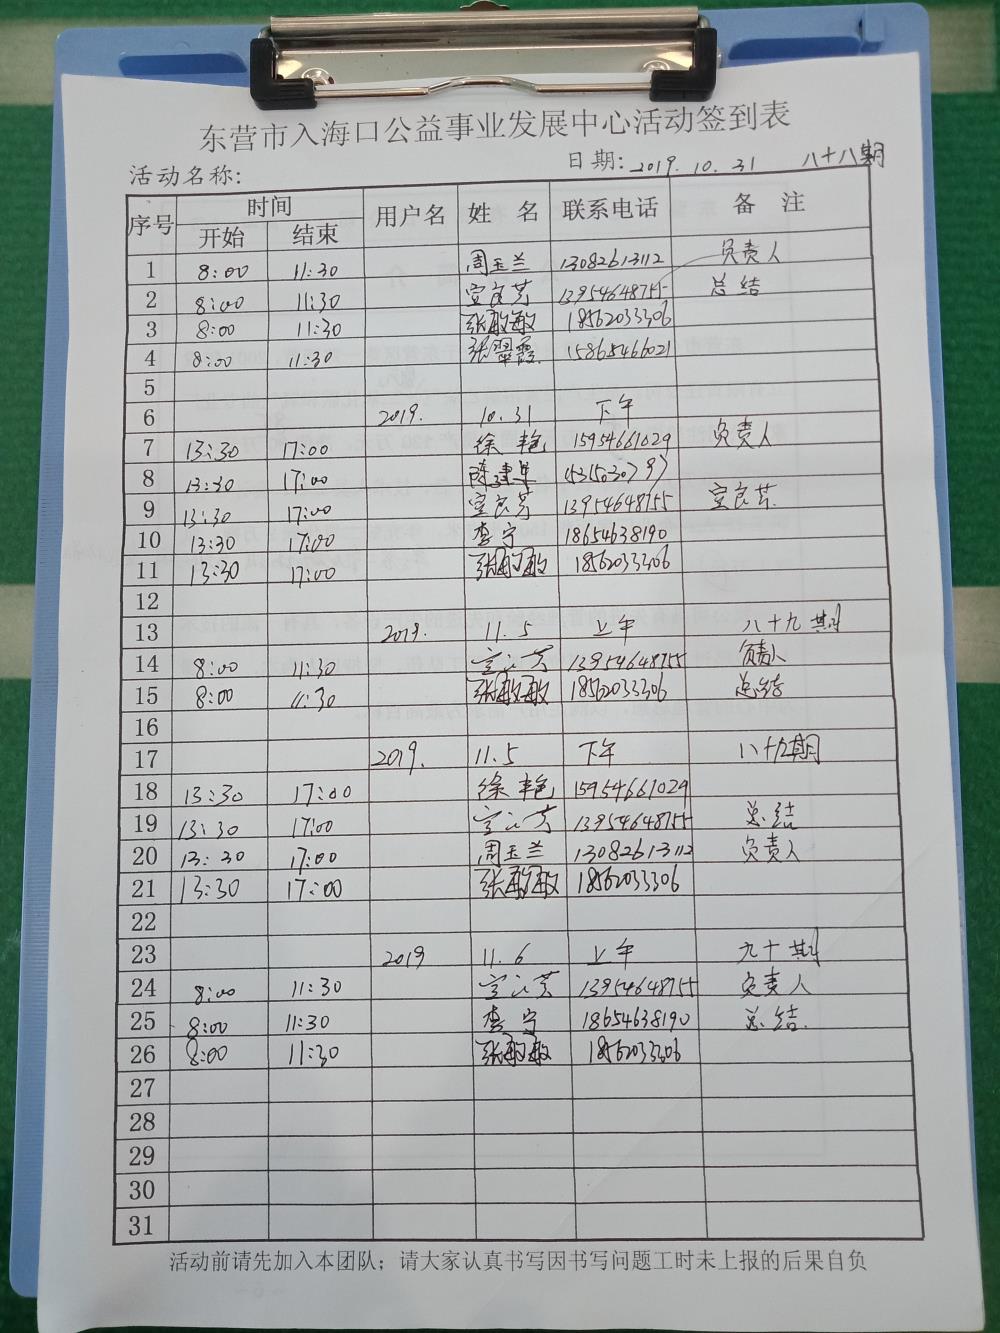 东营市入海口公益事业发展中心活动签到表
活动名称: 日期: 2019.10.31 八十八期
序号 时间 用户名 姓名 联系电话 备注
开始 结束
1 8:00 11:30 周玉兰 13082613112 负责人
2 8:00 11:30 宫良芳 13954648755 总结
3 8:00 11:30 张敏敏 18562033306
4 8:00 11:30 张翠霞 15865466021
5
6 2019. 10.31 下午
7 13:30 17:00 徐艳 15954661029 负责人
8 13:30 17:00 陈建军
9 13:30 17:00 宫良芳 13954648755 宫良芳
10 13:30 17:00 李宁 18654638190
11 13:30 17:00 张敏敏 18562033306
12
13 2019. 11.5 上午 八十九期
14 8:00 11:30 13954648755 负责人
15 8:00 11:30 张敏敏 18562033306 总结
16
17 2019. 11.5 下午 八十九期
18 13:30 17:00 徐艳 15954661029
19 13:30 17:00 13954648755 总结
20 13:30 17:00 周玉兰 13082613112 负责人
21 13:30 17:00 张敏敏 18562033306
22
23 2019 11.6 上午 九十期
24 8:00 11:30 13954648755 负责人
25 8:00 11:30 李宁 18654638190 总结
26 8:00 11:30 张敏敏 18562033306
27
28
29
30
31
活动前请先加入本团队；请大家认真书写因书写问题工时未上报的后果自负